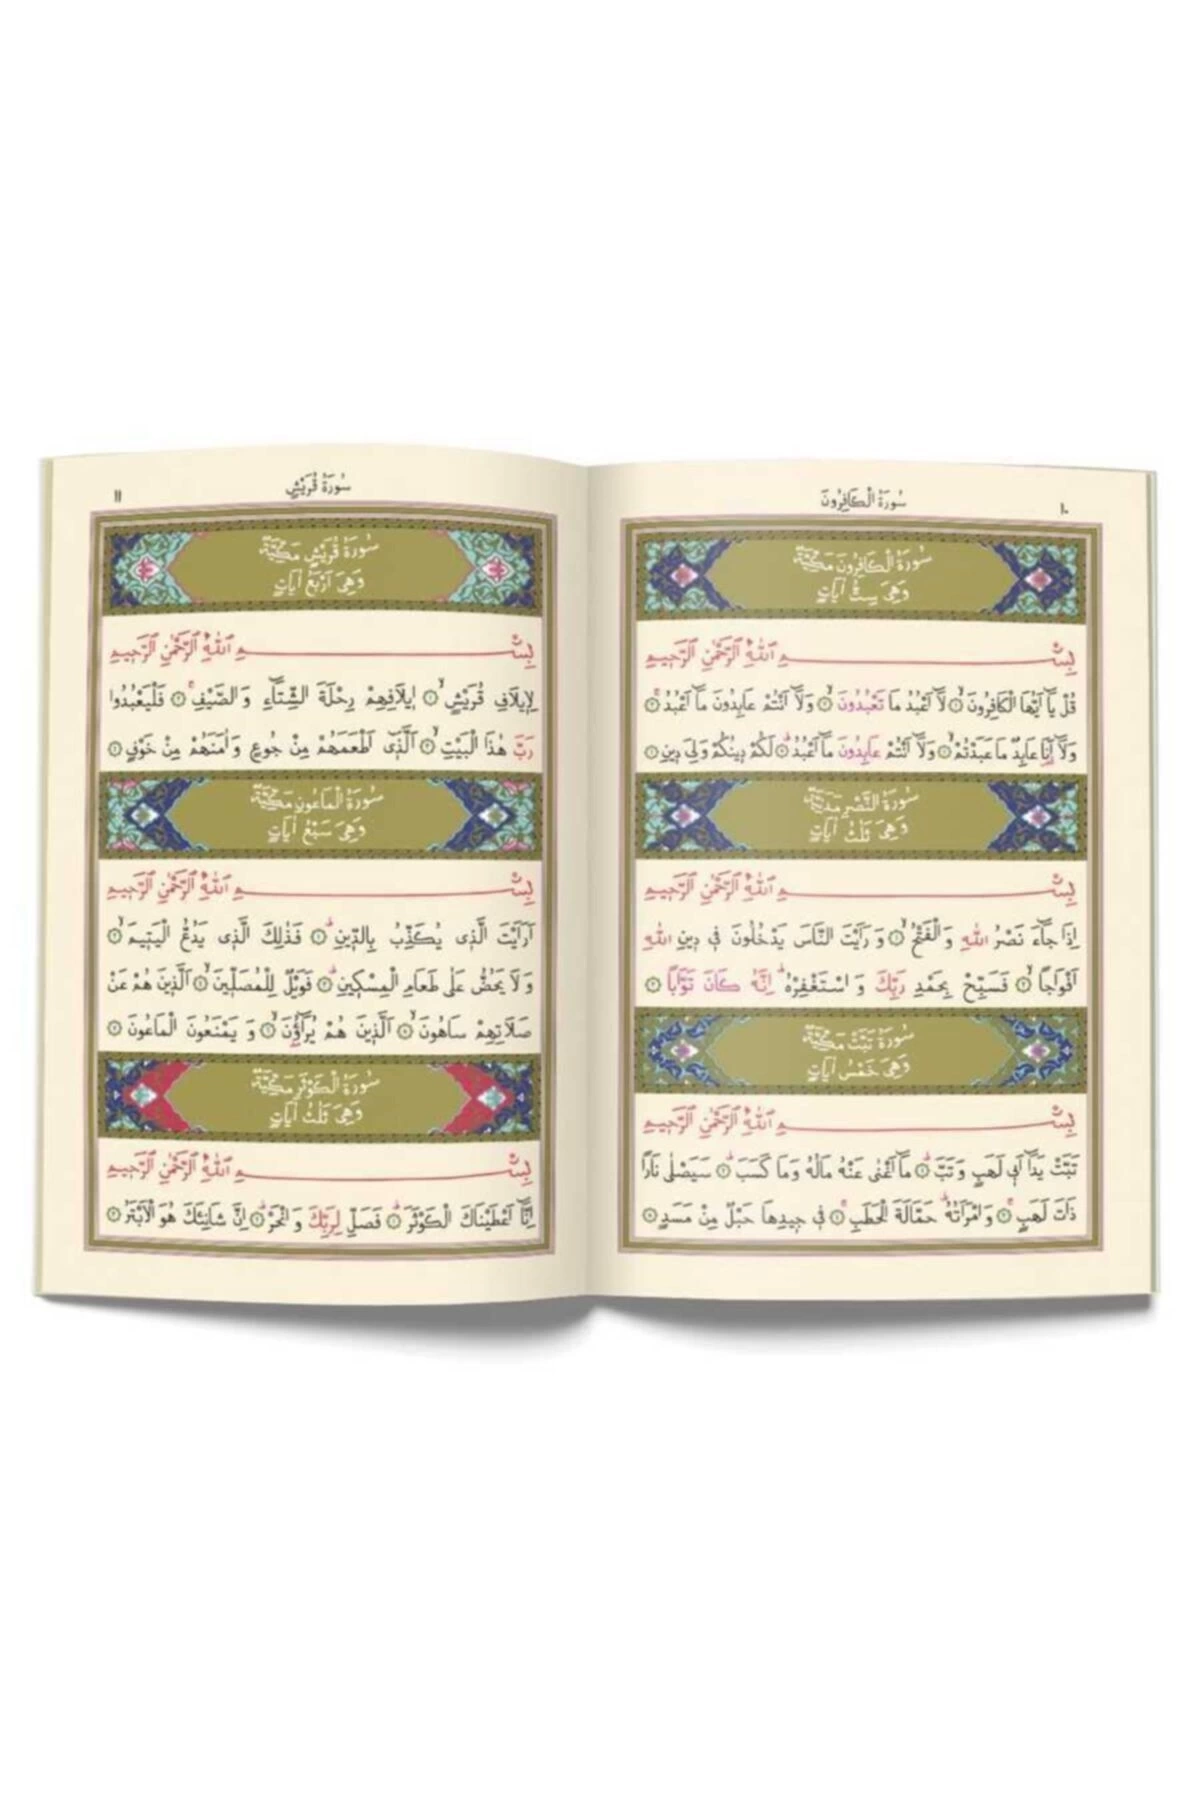 سُورَةُ الْكَافِرُونَ
١٠
سُورَةُ الْكَافِرُونَ مَكِّيَّةٌ
وَهِيَ سِتُّ اٰيَاتٍ
بِسْمِ اللّٰهِ الرَّحْمٰنِ الرَّحِيمِ
قُلْ يَٓا اَيُّهَا الْكَافِرُونَۙ ﴿١﴾ لَٓا اَعْبُدُ مَا تَعْبُدُونَۙ ﴿٢﴾ وَلَٓا اَنْتُمْ عَابِدُونَ مَٓا اَعْبُدُۚ ﴿٣﴾
وَلَٓا اَنَا۬ عَابِدٌ مَا عَبَدْتُمْۙ ﴿٤﴾ وَلَٓا اَنْتُمْ عَابِدُونَ مَٓا اَعْبُدُۜ ﴿٥﴾ لَكُمْ دِينُكُمْ وَلِيَ دِينِ ﴿٦﴾
سُورَةُ النَّصْرِ مَدَنِيَّةٌ
وَهِيَ ثَلٰثُ اٰيَاتٍ
بِسْمِ اللّٰهِ الرَّحْمٰنِ الرَّحِيمِ
اِذَا جَٓاءَ نَصْرُ اللّٰهِ وَالْفَتْحُۙ ﴿١﴾ وَرَاَيْتَ النَّاسَ يَدْخُلُونَ فِي دِينِ اللّٰهِ
اَفْوَاجًاۙ ﴿٢﴾ فَسَبِّحْ بِحَمْدِ رَبِّكَ وَاسْتَغْفِرْهُۜ اِنَّهُ كَانَ تَوَّابًا ﴿٣﴾
سُورَةُ تَبَّتْ مَكِّيَّةٌ
وَهِيَ خَمْسُ اٰيَاتٍ
بِسْمِ اللّٰهِ الرَّحْمٰنِ الرَّحِيمِ
تَبَّتْ يَدَٓا اَبِي لَهَبٍ وَتَبَّۜ ﴿١﴾ مَٓا اَغْنٰى عَنْهُ مَالُهُ وَمَا كَسَبَۜ ﴿٢﴾ سَيَصْلٰى نَارًا
ذَاتَ لَهَبٍۚ ﴿٣﴾ وَامْرَاَتُهُۜ حَمَّالَةَ الْحَطَبِۚ ﴿٤﴾ فِي جِيدِهَا حَبْلٌ مِنْ مَسَدٍ ﴿٥﴾
سُورَةُ قُرَيْشٍ
١١
سُورَةُ قُرَيْشٍ مَكِّيَّةٌ
وَهِيَ اَرْبَعُ اٰيَاتٍ
بِسْمِ اللّٰهِ الرَّحْمٰنِ الرَّحِيمِ
لِاِيلَافِ قُرَيْشٍۙ ﴿١﴾ اِيلَافِهِمْ رِحْلَةَ الشِّتَٓاءِ وَالصَّيْفِۚ ﴿٢﴾ فَلْيَعْبُدُوا
رَبَّ هٰذَا الْبَيْتِۙ ﴿٣﴾ اَلَّذِٓي اَطْعَمَهُمْ مِنْ جُوعٍ وَاٰمَنَهُمْ مِنْ خَوْفٍ ﴿٤﴾
سُورَةُ الْمَاعُونِ مَكِّيَّةٌ
وَهِيَ سَبْعُ اٰيَاتٍ
بِسْمِ اللّٰهِ الرَّحْمٰنِ الرَّحِيمِ
اَرَاَيْتَ الَّذِي يُكَذِّبُ بِالدِّينِۜ ﴿١﴾ فَذٰلِكَ الَّذِي يَدُعُّ الْيَتِيمَۙ ﴿٢﴾
وَلَا يَحُضُّ عَلٰى طَعَامِ الْمِسْكِينِۜ ﴿٣﴾ فَوَيْلٌ لِلْمُصَلِّينَۙ ﴿٤﴾ اَلَّذِينَ هُمْ عَنْ
صَلَاتِهِمْ سَاهُونَۙ ﴿٥﴾ اَلَّذِينَ هُمْ يُرَٓاؤُ۫نَۙ ﴿٦﴾ وَيَمْنَعُونَ الْمَاعُونَ ﴿٧﴾
سُورَةُ الْكَوْثَرِ مَكِّيَّةٌ
وَهِيَ ثَلٰثُ اٰيَاتٍ
بِسْمِ اللّٰهِ الرَّحْمٰنِ الرَّحِيمِ
اِنَّٓا اَعْطَيْنَاكَ الْكَوْثَرَۜ ﴿١﴾ فَصَلِّ لِرَبِّكَ وَانْحَرْۜ ﴿٢﴾ اِنَّ شَانِئَكَ هُوَ الْاَبْتَرُ ﴿٣﴾